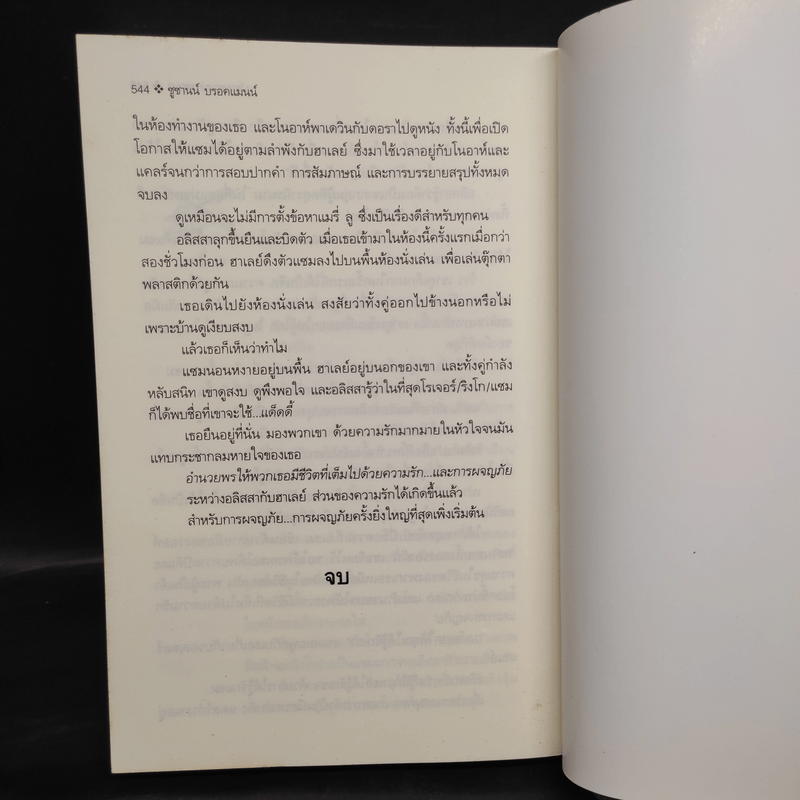 544 ❖ ซูซานน์ บรอคแมนน์
ในห้องทำงานของเธอ และโนอาห์พาเดวินกับดอราไปดูหนัง ทั้งนี้เพื่อเปิด
โอกาสให้แซมได้อยู่ตามลำพังกับฮาเลย์ ซึ่งมาใช้เวลาอยู่กับโนอาห์และ
แคลร์จนกว่าการสอบปากคำ การสัมภาษณ์ และการบรรยายสรุปทั้งหมด
จบลง
ดูเหมือนจะไม่มีการตั้งข้อหาแมรี่ ลู ซึ่งเป็นเรื่องดีสำหรับทุกคน
อลิสสาลุกขึ้นยืนและบิดตัว เมื่อเธอเข้ามาในห้องนี้ครั้งแรกเมื่อกว่า
สองชั่วโมงก่อน ฮาเลย์ดึงตัวแซมลงไปบนพื้นห้องนั่งเล่น เพื่อเล่นตุ๊กตา
พลาสติกด้วยกัน
เธอเดินไปยังห้องนั่งเล่น สงสัยว่าทั้งคู่ออกไปข้างนอกหรือไม่
เพราะบ้านดูเงียบสงบ
แล้วเธอก็เห็นว่าทำไม
แซมนอนหงายอยู่บนพื้น ฮาเลย์อยู่บนอกของเขา และทั้งคู่กำลัง
หลับสนิท เขาดูสงบ ดูพึงพอใจ และอลิสสารู้ว่าในที่สุดโรเจอร์/ริงโก/แซม
ก็ได้พบชื่อที่เขาจะใช้...แด็ดดี้
เธอยืนอยู่ที่นั่น มองพวกเขา ด้วยความรักมากมายในหัวใจจนมัน
แทบกระชากลมหายใจของเธอ
อำนวยพรให้พวกเธอมีชีวิตที่เต็มไปด้วยความรัก...และการผจญภัย
ระหว่างอลิสสากับฮาเลย์ ส่วนของความรักได้เกิดขึ้นแล้ว
สำหรับการผจญภัย...การผจญภัยครั้งยิ่งใหญ่ที่สุดเพิ่งเริ่มต้น
จบ